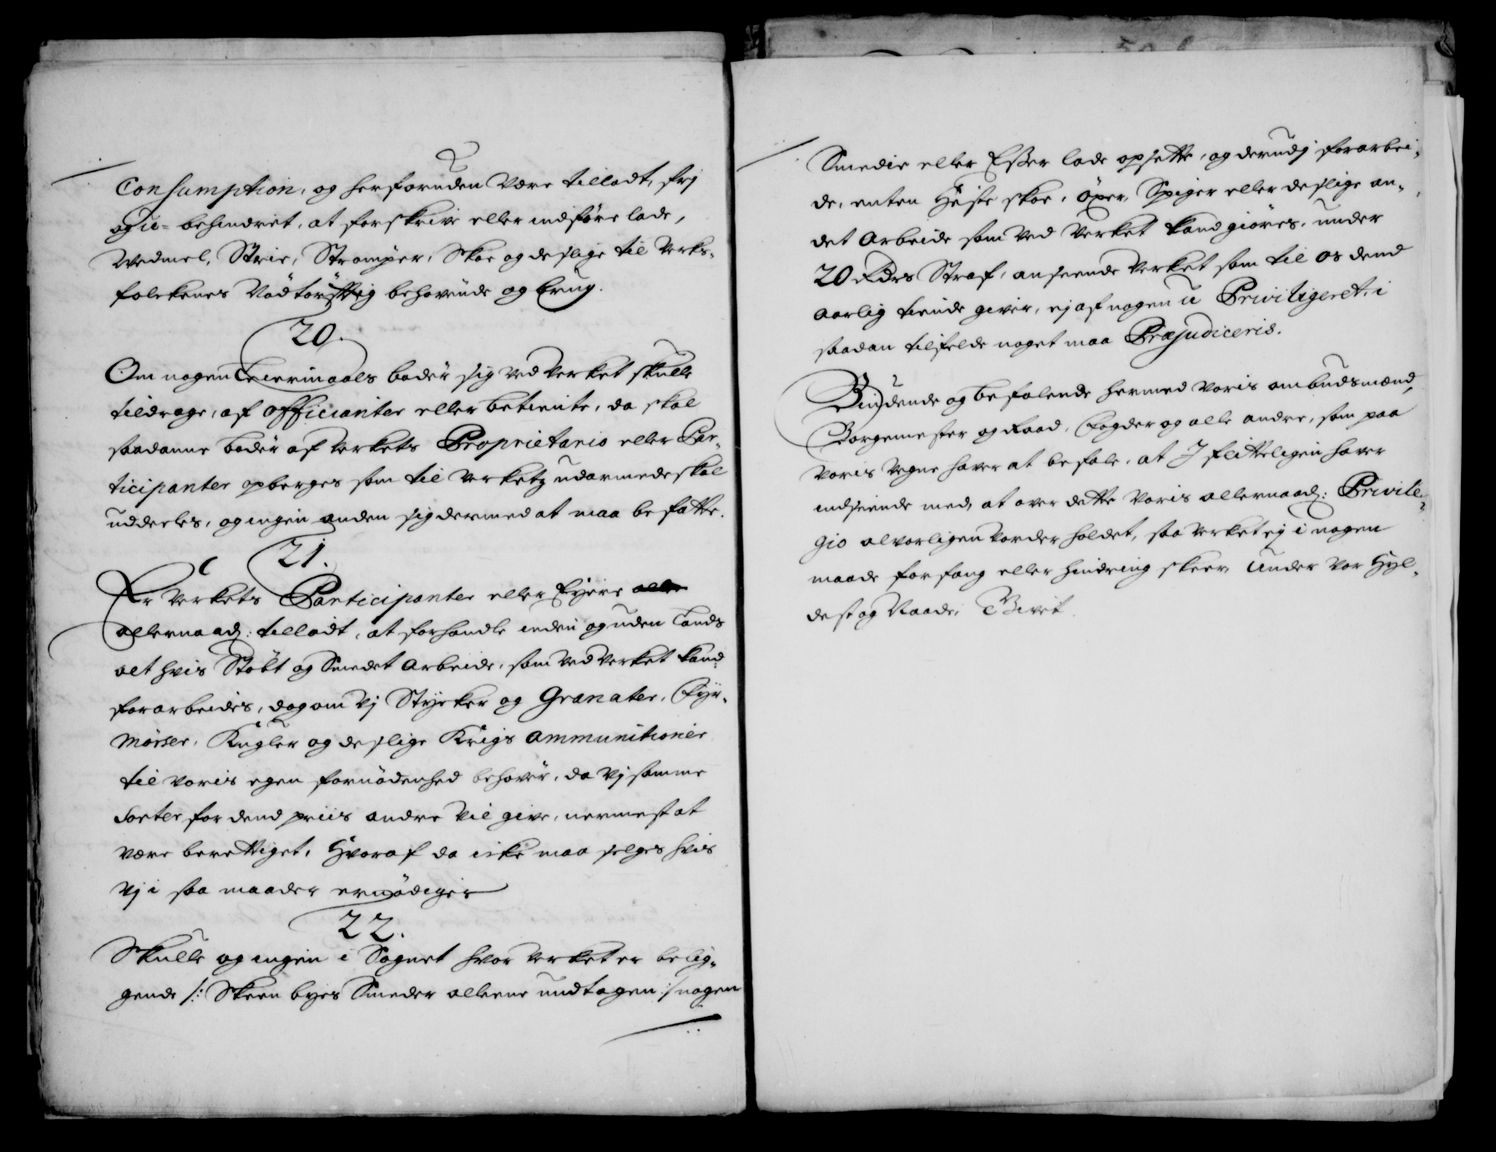 Consumption, og herforuden være tilladt, frj
og u-behindret, at forskrive eller indføre lade,
Wedmel, Strie, Strømper, Skoe og deslige til Verks-
folckenes Nødtørftig behovende og brug.
20.
Om nogen Leiermaals bøder sig ved Verket skulle
tildrage, af officianter eller betiente, da skal
saadanne bøder af Verkets Proprietario eller Par-
ticipanter opberges som til Verketz udarmede skal
uddeeles, og ingen anden sig dermed at maa befatte.
21.
Er Verkets Participanter eller Eyere
allernaad: tilladt, at forhandle inden og uden Lands
alt hvis Støbt og Smedet Arbeide, som ved Verket kand
forarbeides, dog om Vj Stycker og Granater, Fyr-
Mørser, Kugler og deslige Krigs Ammunitioner
til Voris egen fornødenhed behøver, da Vj samme
Sorter for dend priis andre vil give, nermest at
være berettiget, Hvoraf da icke maa selges hvis
Vj i saa maader ernødiger
22.
Skulle og ingen i Sognet hvor Verket er belig-
gende /: Skeen byes Smeder alleene undtagen :/ nogen
Smedie eller Esser lade opsette, og derudj forarbei-
de, enten Heste skoe, Öxer, Spiger eller deslige an-
det Arbeide som ved Verket kand giøres, under
20 Rdrs Straf, anseende Verket som til os dend
aarlig tiende giver, ej af nogen u Priviligeret i
saadan tilfelde noget maa Præjudiceris.
Biudende og befalende hermed Voris ambudsmænd,
Borgemester og Raad, Fogder og alle andre, som paa
Voris Vegne haver at befale, at I flitteligen haver
indseende med, at over dette Voris allernaad: Privile-
gio alvorligen vorder holdet, saa Verket ej i nogen
maade forfang eller hindring skeer Under Vor Hyl-
dest og Naade, Bevit